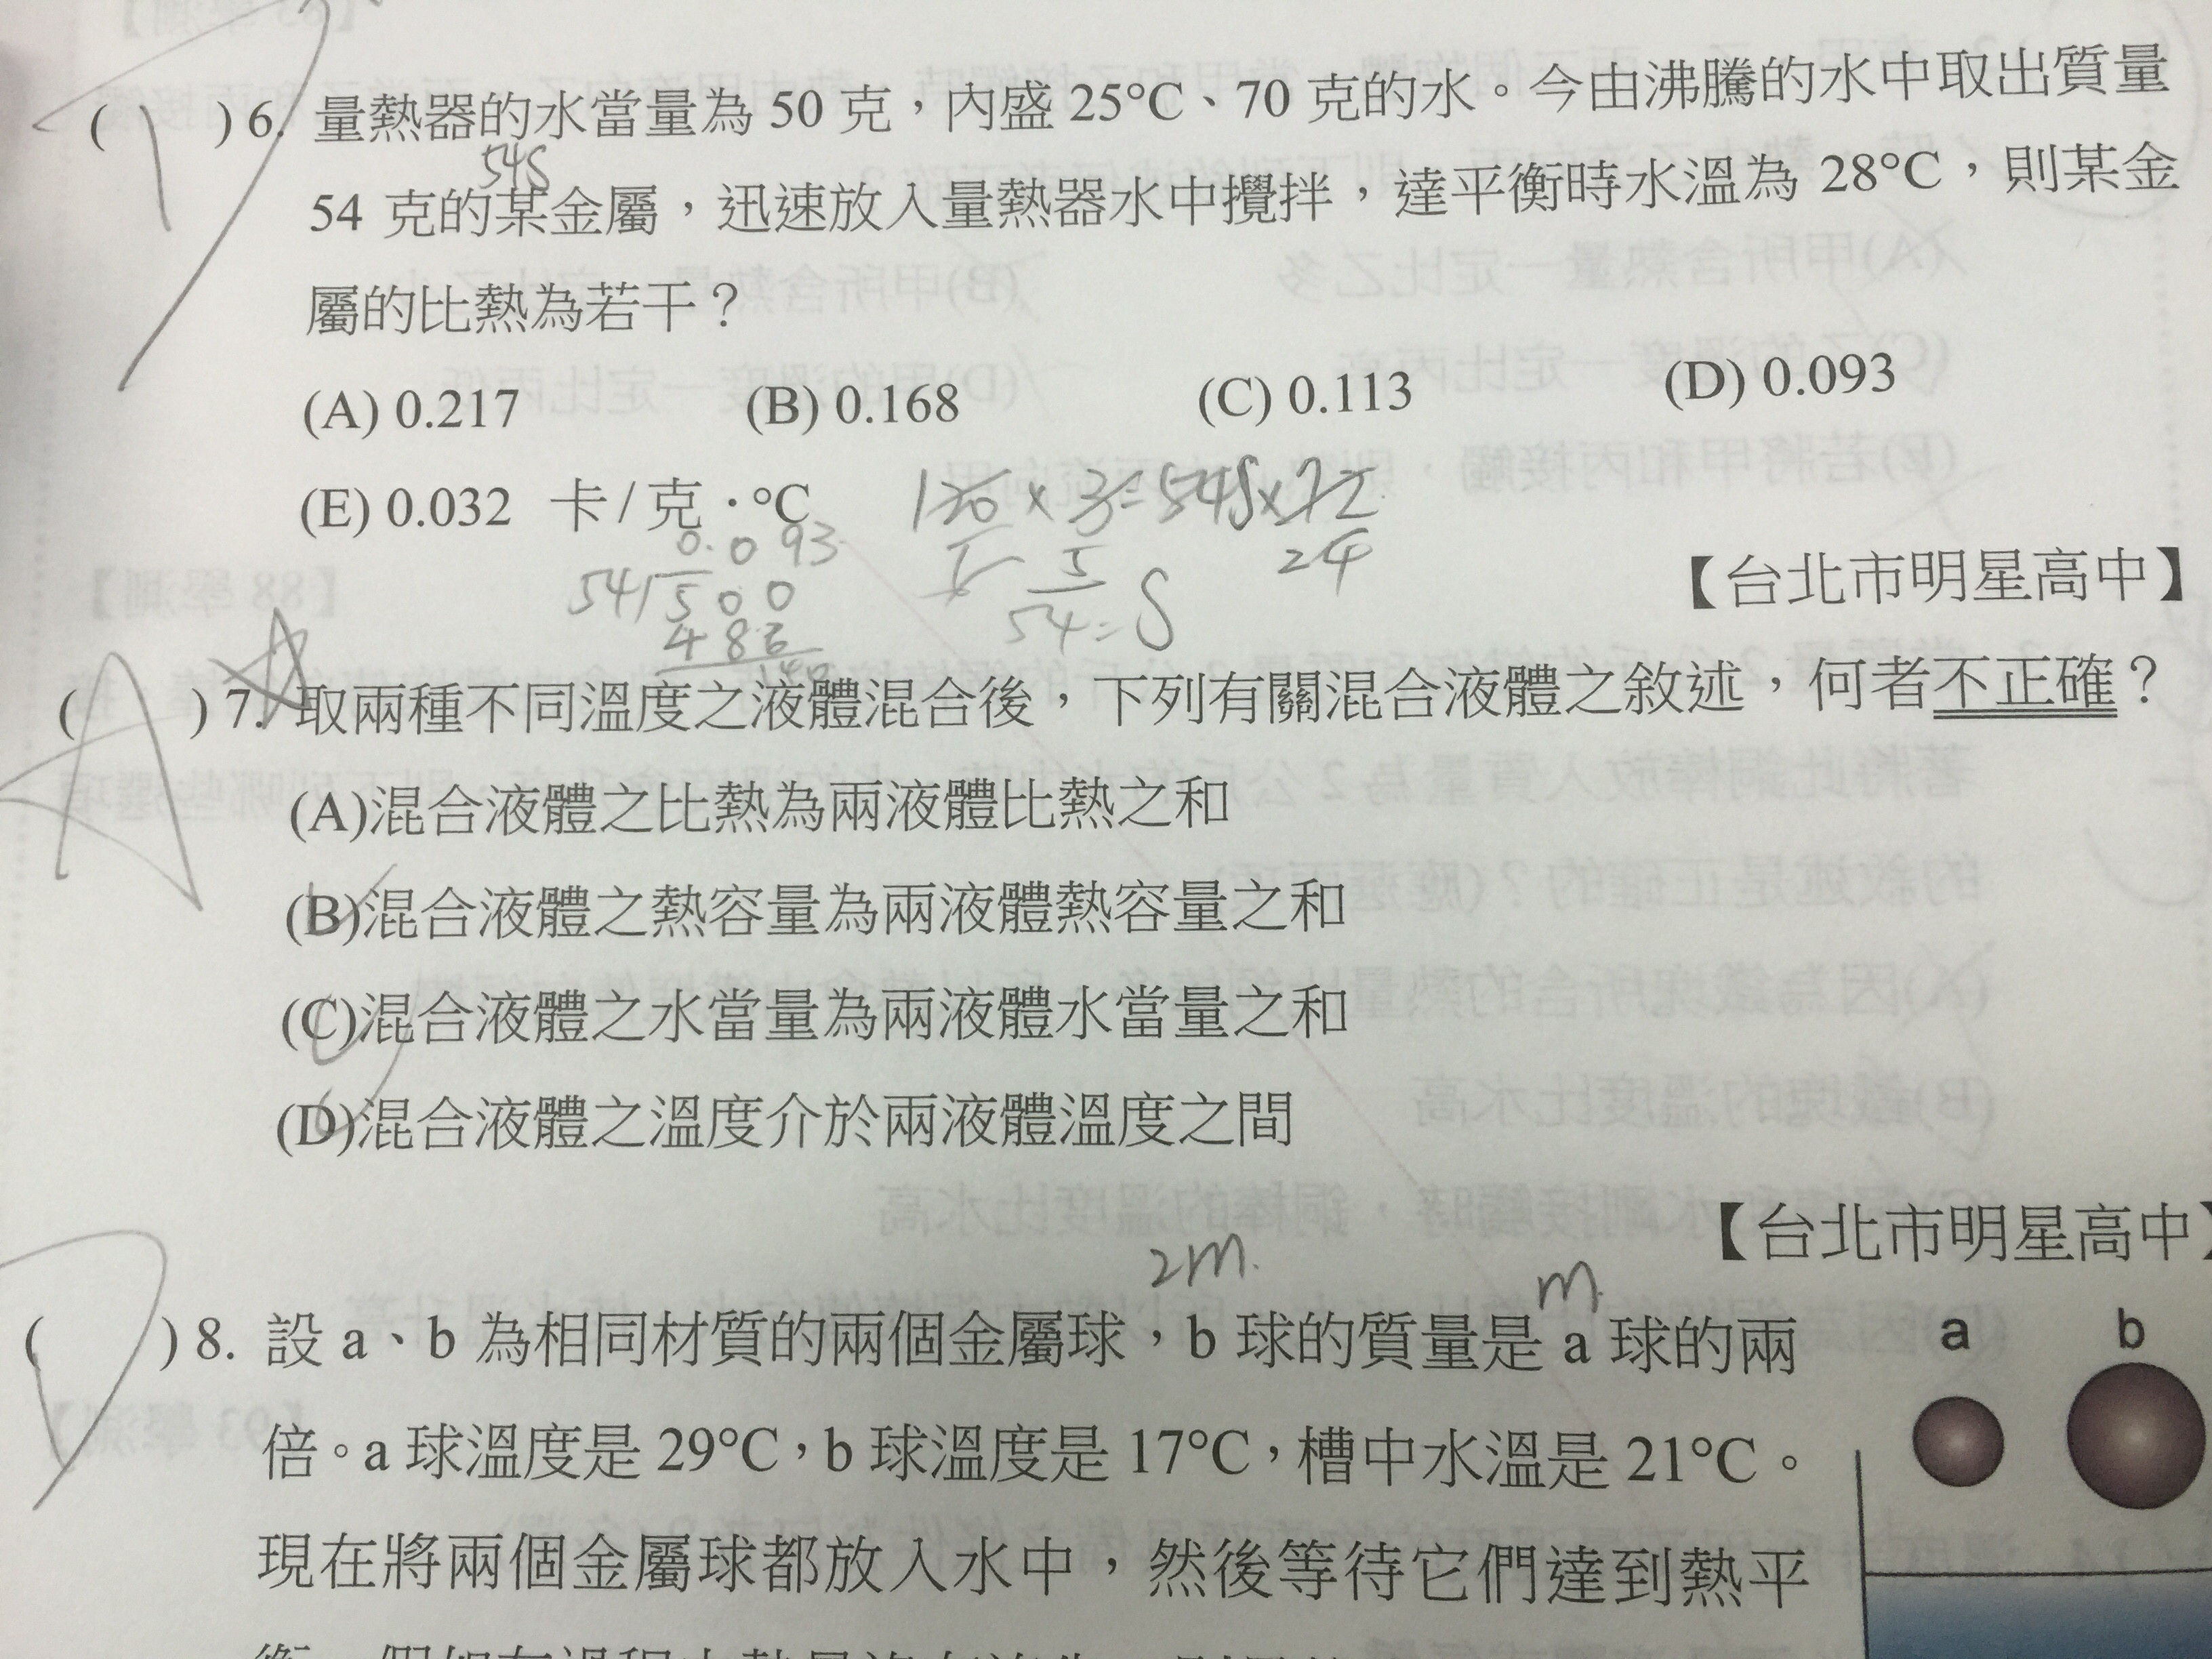 ( )6. 量熱器的水當量為 50 克，內盛 25°C、70 克的水。今由沸騰的水中取出質量
54S
54 克的某金屬，迅速放入量熱器水中攪拌，達平衡時水溫為 28°C，則某金
屬的比熱為若干？
(A) 0.217 (B) 0.168 (C) 0.113 (D) 0.093
(E) 0.032 卡 / 克．°C
120 × 3 = 54S × 72
0.093
5 24
54 500
5
54 = S
486
140
【台北市明星高中】
A
( )7. 取兩種不同溫度之液體混合後，下列有關混合液體之敘述，何者不正確？
(A)混合液體之比熱為兩液體比熱之和
(B)混合液體之熱容量為兩液體熱容量之和
(C)混合液體之水當量為兩液體水當量之和
(D)混合液體之溫度介於兩液體溫度之間
【台北市明星高中】
2m
m
D
( )8. 設 a、b 為相同材質的兩個金屬球，b 球的質量是 a 球的兩
倍。a 球溫度是 29°C，b 球溫度是 17°C，槽中水溫是 21°C。
現在將兩個金屬球都放入水中，然後等待它們達到熱平
a b